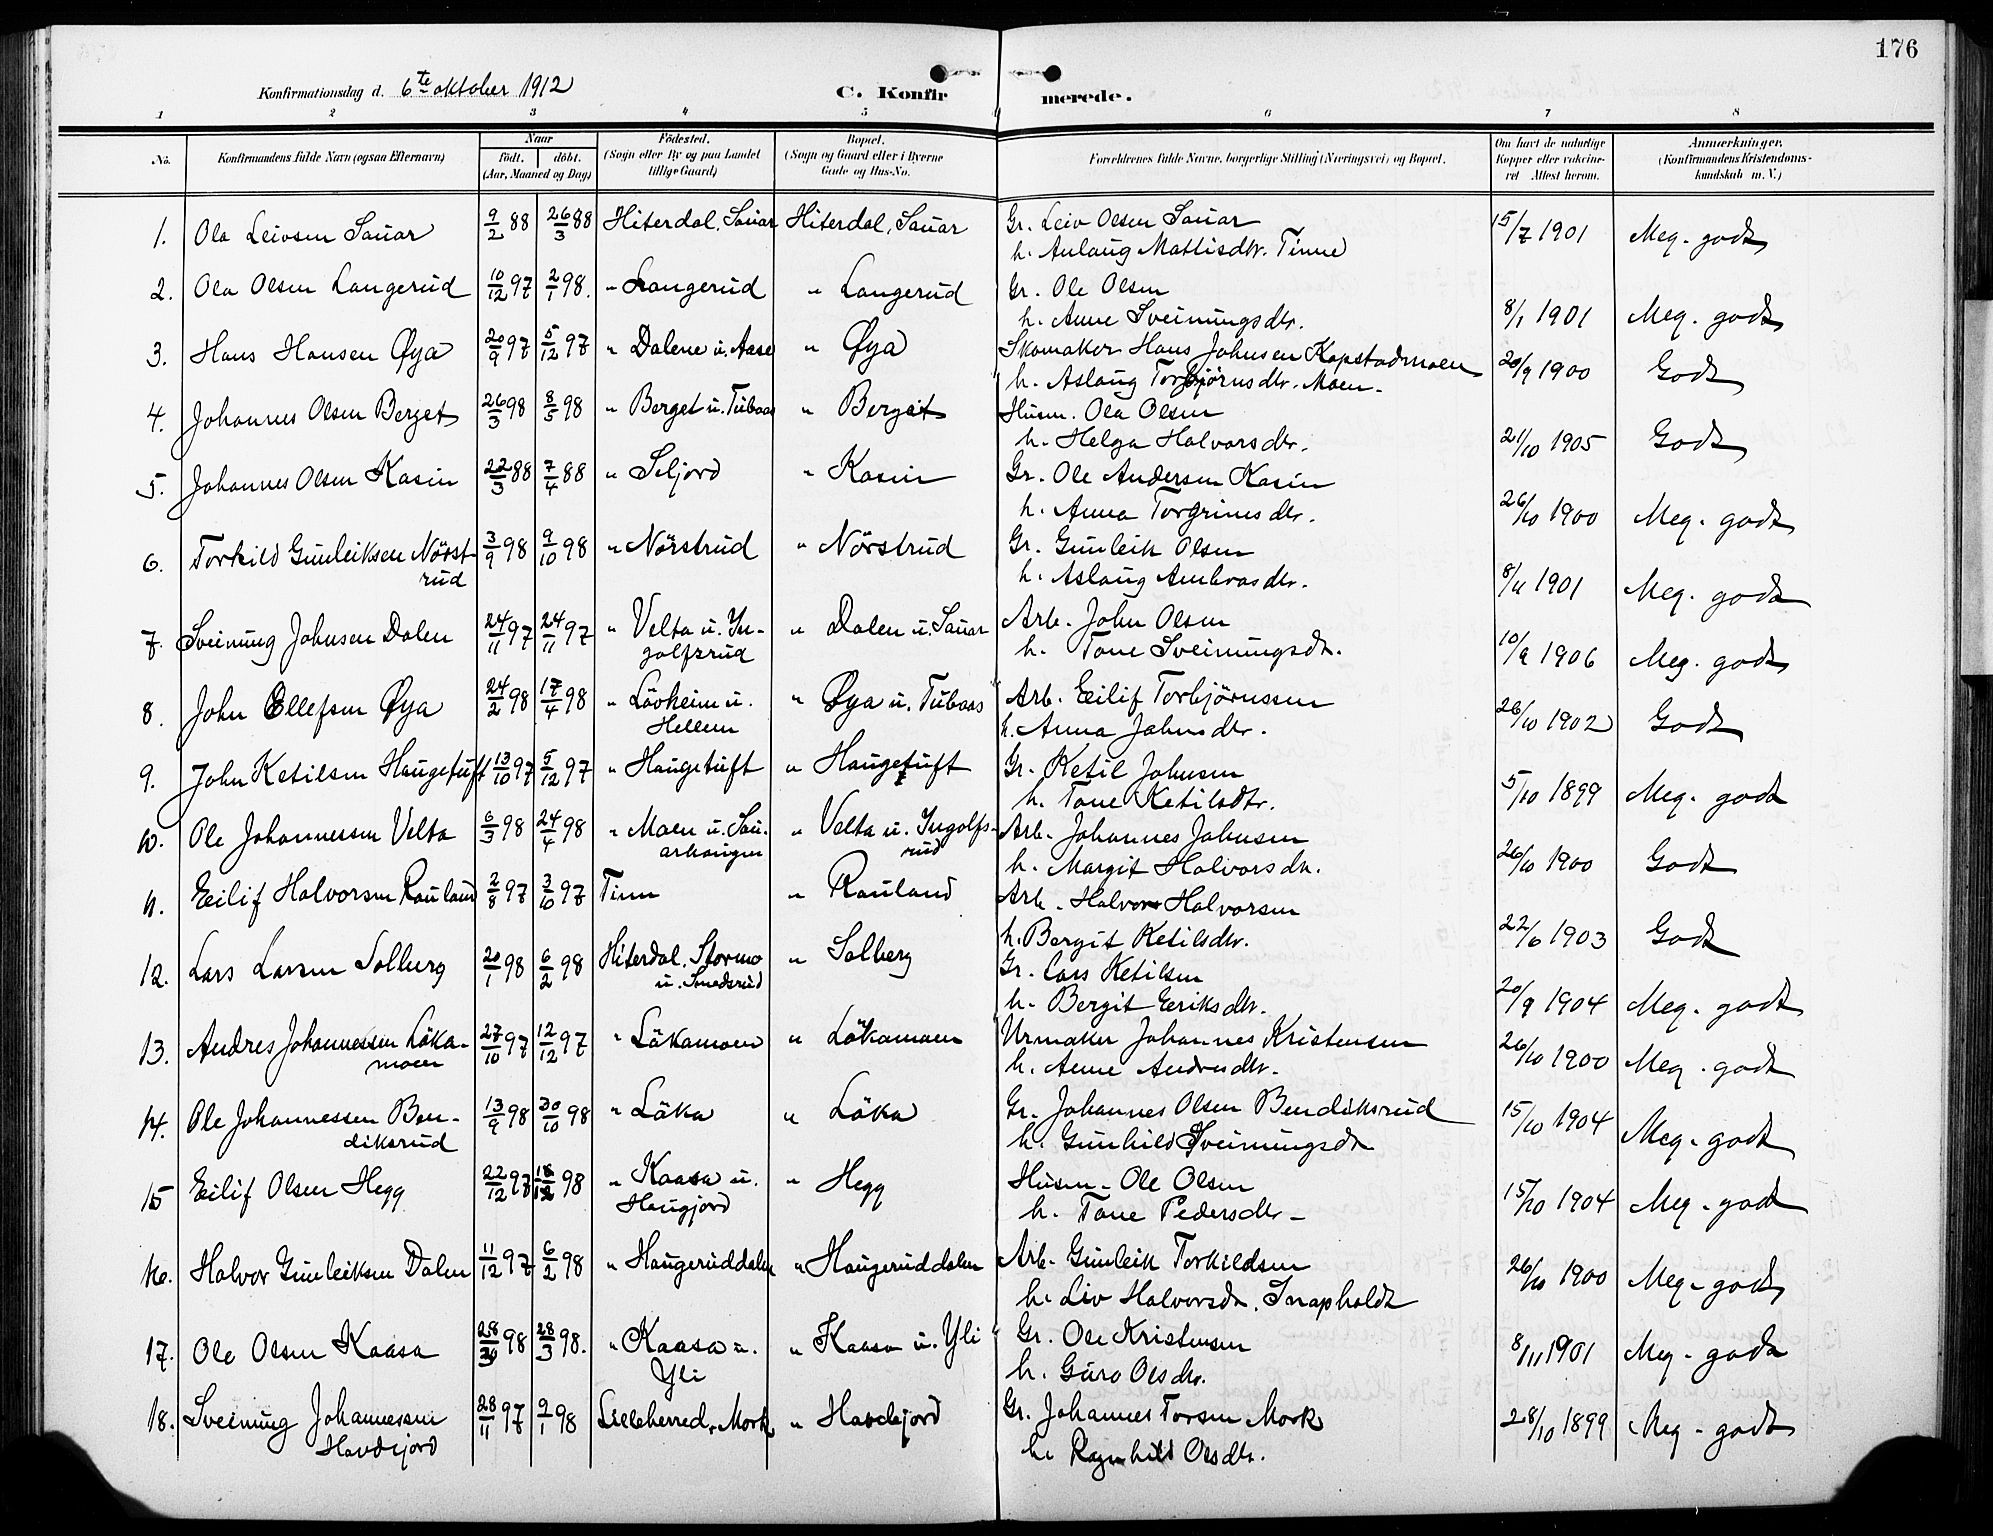 176
Konfirmationsdag d. 6te oktober 1912
C. Konfirmerede.
1 2 3 4 5 6 7 8
No. Konfirmandens fulde Navn (ogsaa Efternavn) Naar født. døbt. (Aar, Maaned og Dag) Födested. (Sogn eller By og paa Landet tillige Gaard) Bopæl. (Sogn og Gaard eller i Byerne Gade og Hus-No. Forældrenes fulde Navne, borgerlige Stilling (Næringsvei) og Bopæl. Om havt de naturlige Kopper eller vakcineret Attest herom. Anmærkninger. (Konfirmandens Kristendomskundskab m. V.)
1. Ola Leivsen Sauar 9/2 88 26/3 88 Hiterdal, Sauar Hiterdal, Sauar Gr. Leiv Olsen Sauar 15/7 1901 Meg. godt
h. Anlaug Mattisdtr. Tinne
2. Ola Olsen Langerud 10/12 97 2/1 98. " Langerud " Langerud Gr. Ole Olsen
h. Anne Sveinungsdtr. 8/1 1901 Meg. godt
3. Hans Hansen Øya 20/9 97 5/12 97 " Dalene u. Aase " Øya Skomaker Hans Johnsen Kopstadmoen 20/9 1900 Godt
h. Aslaug Torbjørnsdtr. Moen.
4. Johannes Olsen Berget 26/3 98 8/5 98 " Berget u. Tubaas " Berget Husm. Ola Olsen
h. Helga Halvorsdtr. 21/10 1905 Godt
5. Johannes Olsen Kasin 22/3 88 7/4 88 " Seljord " Kasin Gr. Ole Andersen Kasin
h. Anna Torgrimsdtr. 26/10 1900 Meg. godt
6. Torkild Gunleiksen Nörst- 3/9 98 9/10 98 " Nörstrud " Nörstrud Gr. Gunleik Olsen
rud h. Aslaug Ambrosdtr. 8/11 1901 Meg. godt
7. Sveinung Johnsen Dalen 24/11 97 24/11 97 " Velta u. In- " Dalen u. Sauar Arb. John Olsen
golfsrud h. Tone Sveinungsdt. 10/9 1906 Meg. godt
8. John Ellefsen Øya 24/2 98 17/4 98 " Lövheim u. " Øya u. Tubaas Arb. Eilif Torbjörnssen
Hellem h. Anna Johnsdtr. 26/10 1902 Godt
9. John Ketilsen Haugetuft 13/10 97 5/12 97 " Haugetuft " Haugetuft Gr. Ketil Johnsen
h. Tone Ketilsdtr. 5/10 1899 Meg. godt
10. Ole Johannessen Velta 6/3 98 24/4 98 " Moen u. Sau- " Velta u. Ingolfs- Arb. Johannes Johnsen
arhaugen rud h. Margit Halvorsdtr. 26/10 1900 Godt
11. Eilif Halvorsen Rauland 2/8 97 3/10 97 Tinn " Rauland Arb. Halvor Halvorsen
h. Bergit Ketilsdtr. 22/6 1903 Godt
12. Lars Larsen Solberg 20/1 98 6/2 98 Hiterdal. Stormo " Solberg Gr. Lars Ketilsen
u. Smedsrud h. Bergit Eriksdtr. 20/9 1904 Meg. godt
13. Andres Johannessen Löka- 27/10 97 12/12 97 " Lökamoen " Lökamoen Urmaker Johannes Kristensen
moen h. Anne Andresdtr. 26/10 1900 Meg. godt
14. Ole Johannessen Ben- 13/9 98 30/10 98 " Löka " Löka Gr. Johannes Olsen Bendiksrud 15/10 1904
diksrud h. Gunhild Sveinungsdt Meg. godt
15 Eilif Olsen Hegg 22/12 97 18/2 98 " Kaasa u. " Hegg Husm. Ole Olsen
Haugjord h. Tone Pedersdtr. 15/10 1904 Meg. godt
16. Halvor Gunleiksen Dalen 11/12 97 6/2 98 " Haugeruddalen " Haugeruddalen Arb. Gunleik Torkildsen 26/10 1900 Meg. godt
h. Liv Halvorsdtr. Snapholdt
17. Ole Olsen Kaasa 28/ 98 28/3 98. " Kaasa u. " Kaasa u. Yli Gr. Ole Kristensen 8/11 1901 Meg. godt
Yli h. Guro Olsdtr.
18. Sveinung Johannessen 28/11 97 9/1 98 Lilleherred, Mork " Havdejord Gr. Johannes Torsen Mork 28/10 1899 Meg. godt
Havdejord h. Ragnhild Olsdtr.